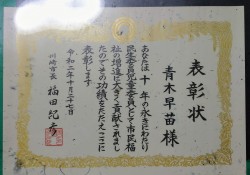 表彰状
青木早苗様
あなたは十年の永きにわたり
民生委員児童委員として市民福
祉の増進に大きく貢献されまし
たのでその功績をたたえここに
表彰します
令和二年十月二十七日
川崎市長 福田紀彦